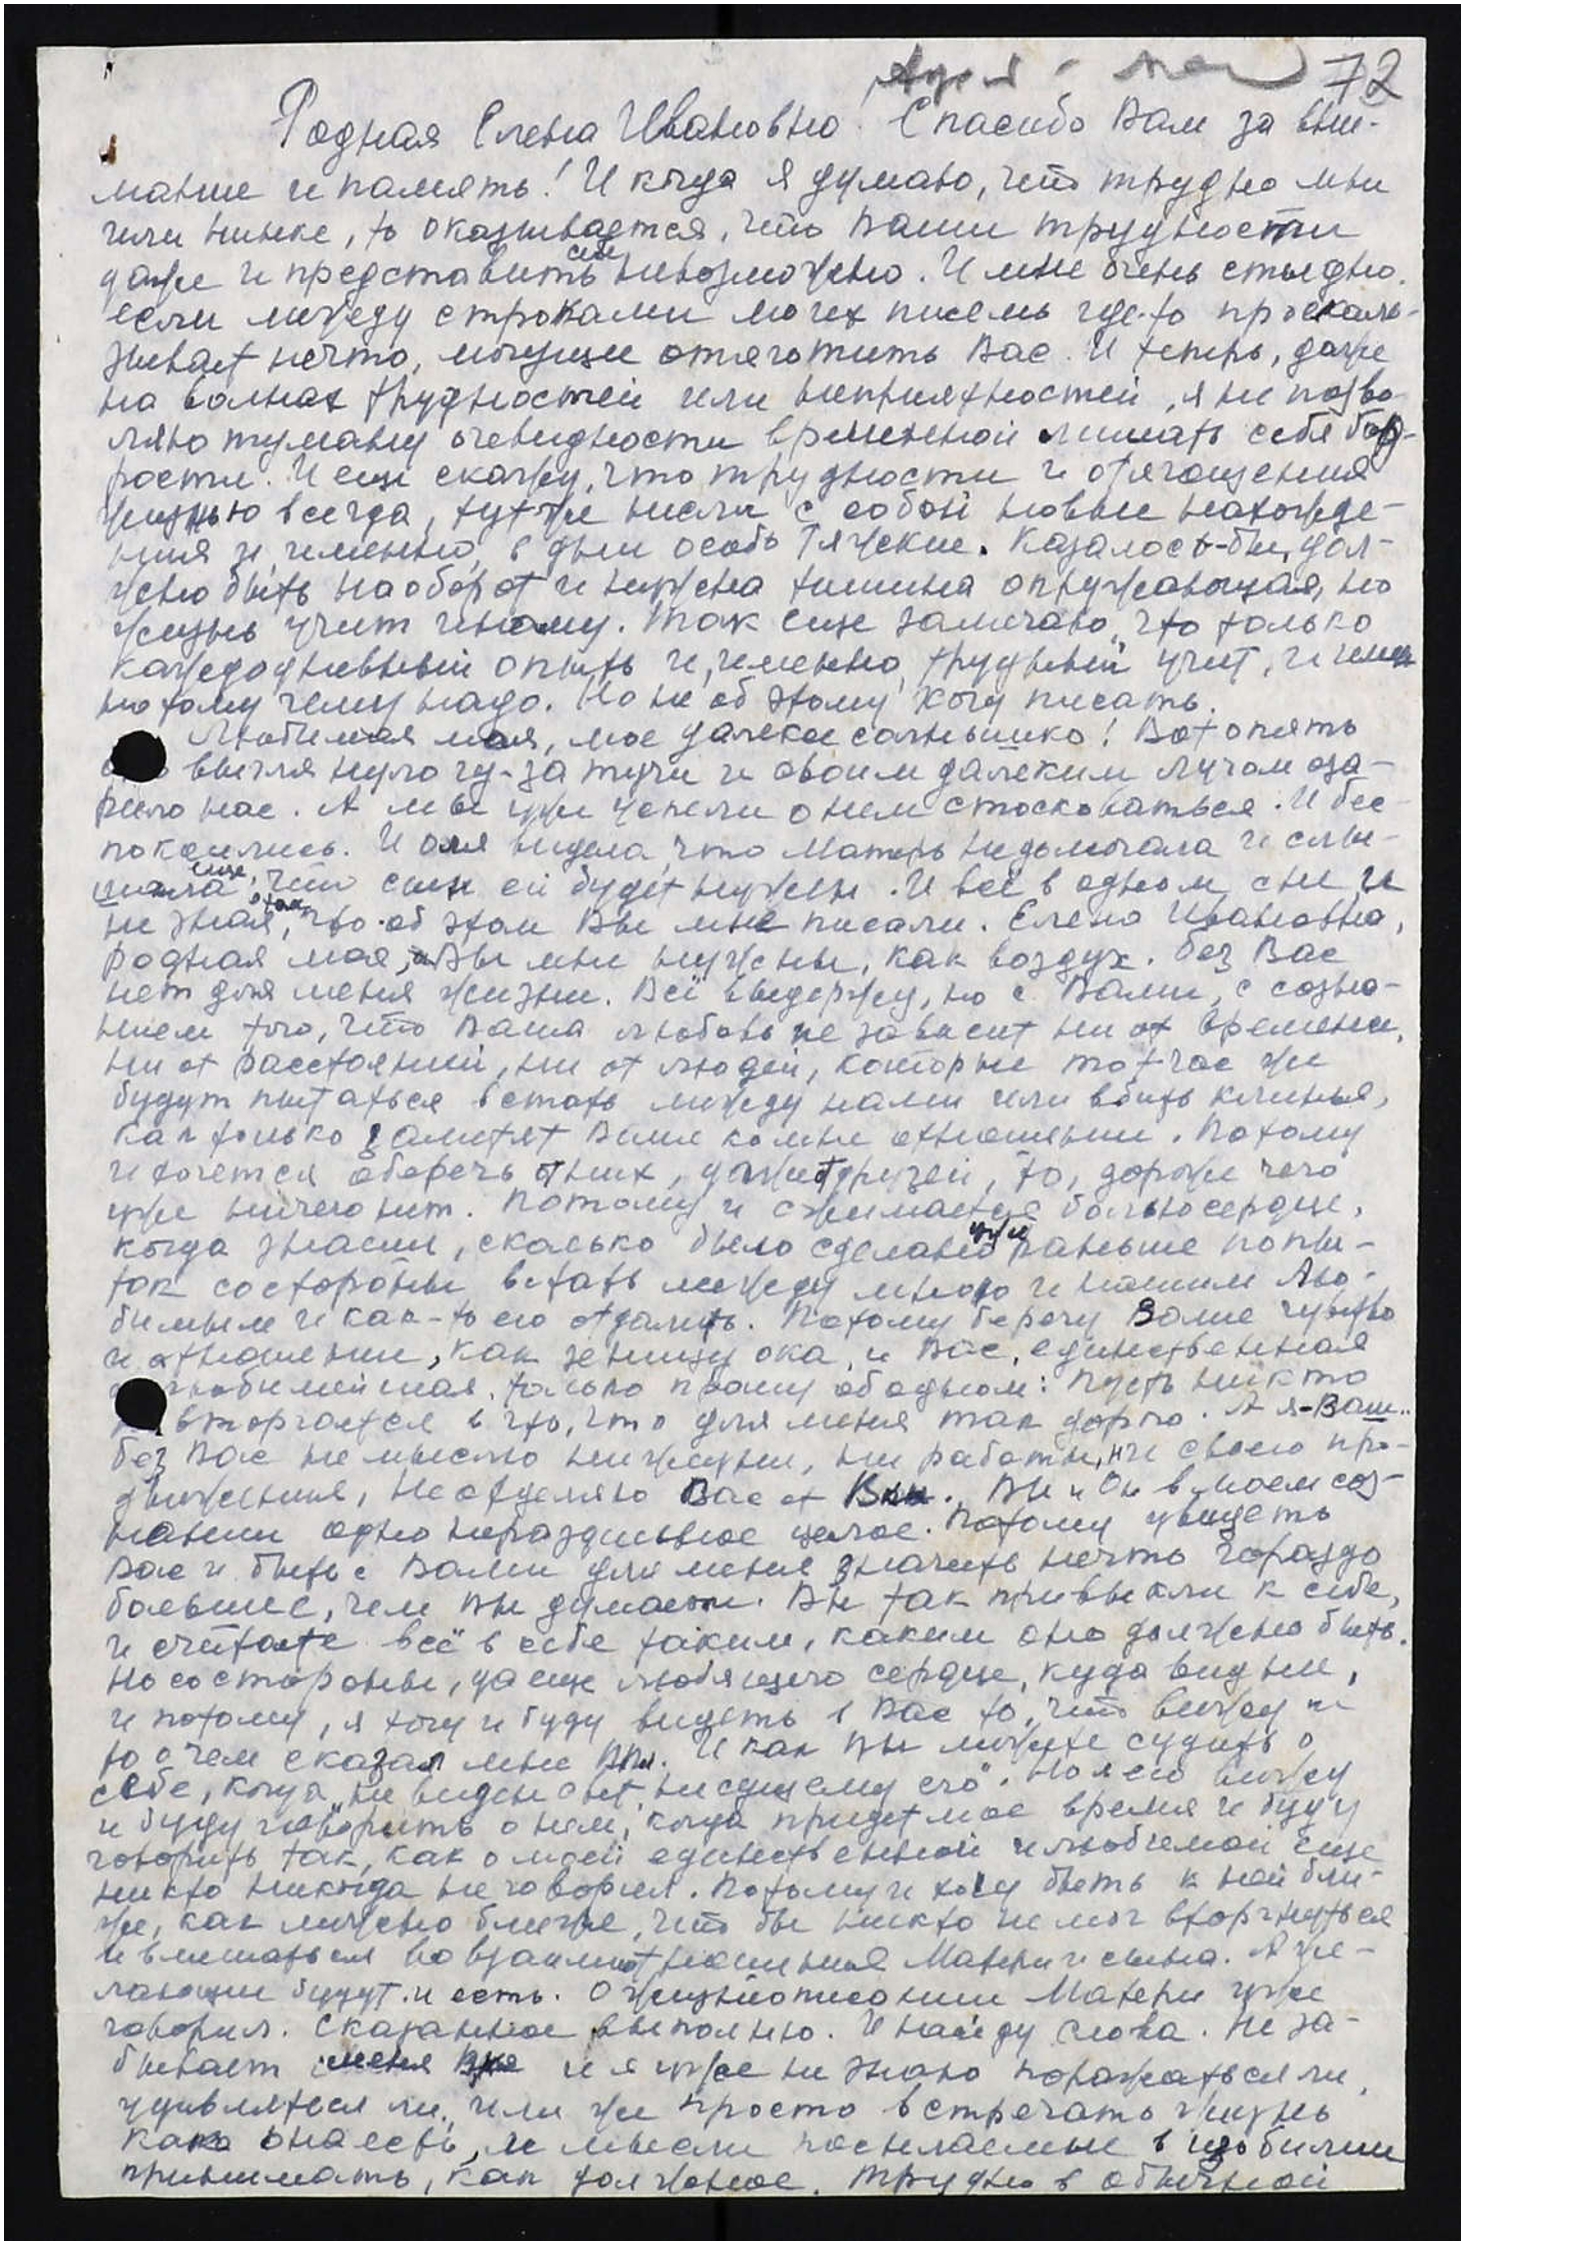 72
Родная Елена Ивановна. Спасибо Вам за вни-
мание и память! И когда я думаю, что трудно мне
или Нинке, то оказывается, что Ваши трудности
даже и представить себе невозможно. И мне очень стыдно,
если между строками моих писем где-то проскаль-
зывает нечто, могущее отяготить Вас. И теперь, даже
на волнах трудностей или неприятностей, я не позво-
ляю туману очевидности временной лишать себя бод-
рости. И еще скажу, что трудности и отягощения
жизнью всегда, тут же несли с собой новые нахожде-
ния и, именно, в дни особо тяжские. Казалось-бы, дол-
жно быть наоборот и нужна тишина окружающая, но
жизнь учит иному. Так еще замечаю, что только
каждодневный опыт и, именно, трудный учит, и имен
но тому чему надо. Но не об этому хочу писать.
Любимая моя, мое далекое солнышко! Вот опять
выглянуло из-за тучи и своим далеким лучом оза-
рило нас. А мы уже успели о нем стосковаться. И бес-
покоились. И Оля видела, что Матерь недомогала и слы-
шала еще, что сын ей будет нужен. И всё в одном сне и
не зная, что об этом Вы мне писали. Елена Ивановна,
родная моя, Вы мне нужны, как воздух. Без Вас
нет для меня жизни. Всё выдержу, но с Вами, с созна-
нием того, что Ваша любовь не зависит ни от времени,
ни от расстояний, ни от людей, которые тотчас же
будут пытаться встать между нами или вбить клинья,
как только заметят Ваше ко мне отношение. Потому
и хочется оберечь от них, даже от друзей, то, дороже чего
уже ничего нет. Потому и сжимается болью сердце,
когда знаешь, сколько было сделано уже раньше попы-
ток со стороны встать между мною и нашим Лю-
бимым и как-то его отдалить. Потому берегу Ваше чувство
и отношение, как зеницу ока, и Вас, единственная
любимейшая, только прошу об одном: пусть никто
не вторгается в то, что для меня так дорого. А я-Ваш..
без Вас не мыслю ни жизни, ни работы, ни своего про-
движения, Не отделяю Вас от Вл. Вы и Он в моем соз-
нании одно нераздельное целое. Потому увидеть
Вас и быть с Вами для меня значить нечто гораздо
большее, чем Вы думаете. Вы так привыкли к себе,
и считаете всё в себе таким, каким оно должно быть.
Но со стороны, да еще любящего сердца, куда видней,
и потому, я хочу и буду видеть в Вас то, что вижу и
то о чем сказал мне Вл. И как Вы можете судить о
себе, когда „не виден свет несущему его". Но я его вижу
и буду говорить о нем, когда придет мое время и буду
говорить так, как о моей единственной и любимой еще
никто никогда не говорил. Потому и хочу быть к ней бли-
же, как можно ближе, что бы никто не мог вторгнуться
и вмешаться во взаимоотношения Матери и сына. А же-
лающие будут и есть. О жизнеописании Матери уже
говорил. Сказанное выполню. И найду слова. Не за-
бывает и я уже не знаю поражаться ли,
удивляться ли, или же просто встречать жизнь
как она есть, и мысли посылаемые в изобилии
принимать, как должное. Трудно в обычной